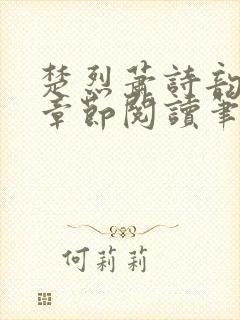 楚烈蕭詩韵
章節閱讀筆
何莉莉